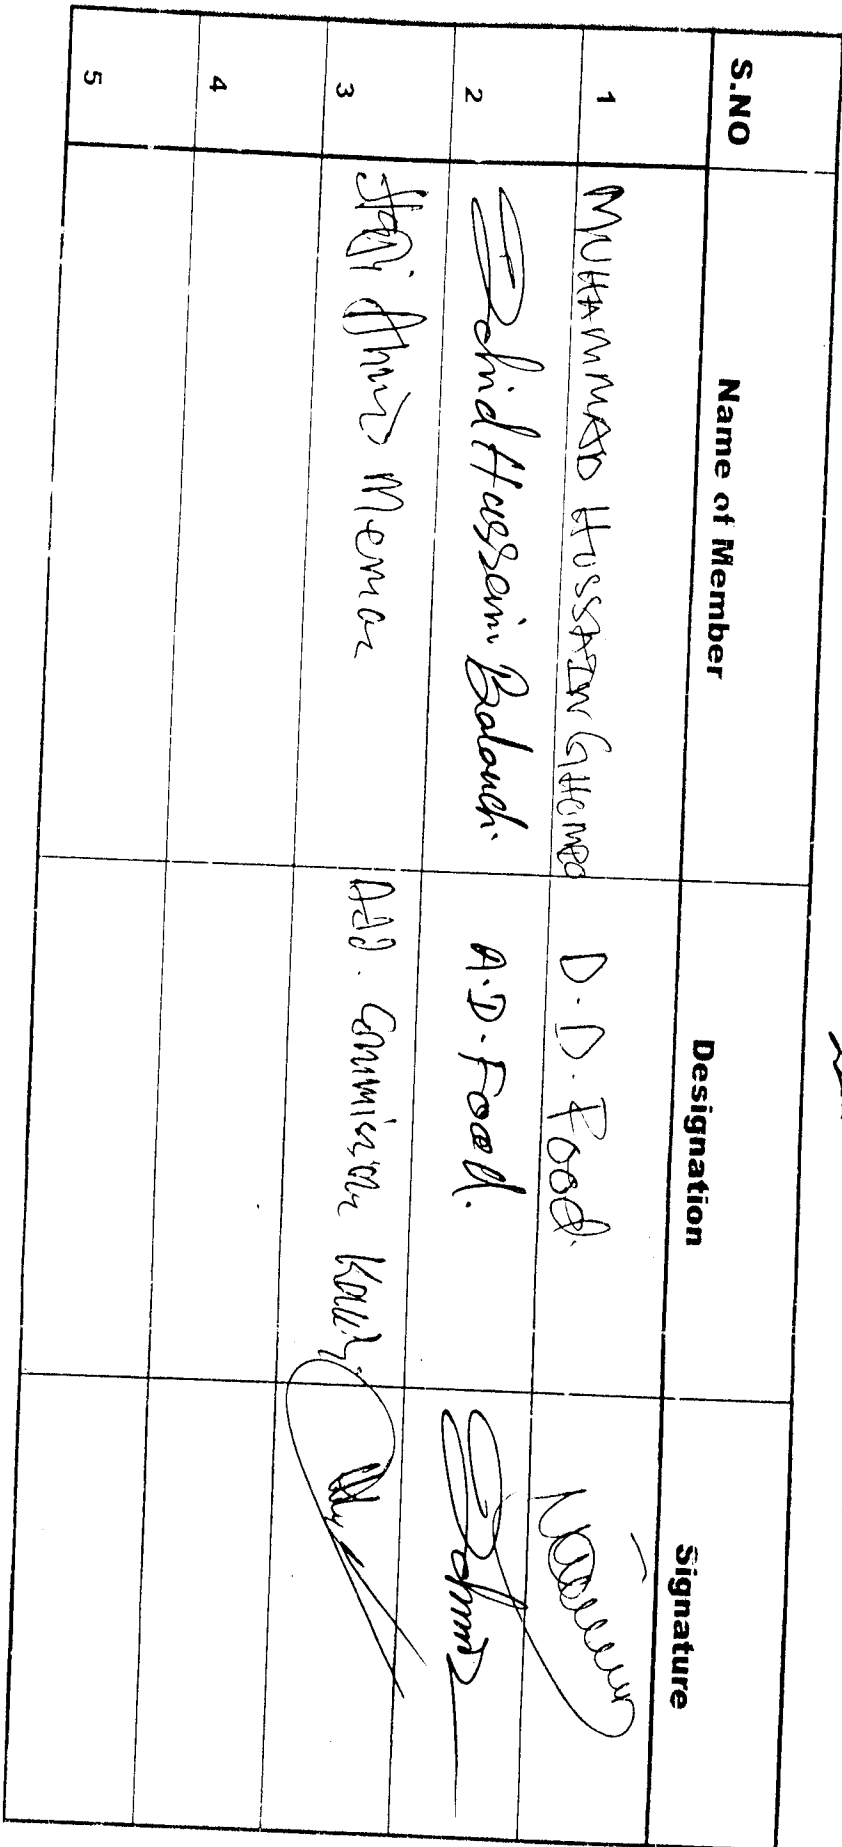 S.NO Name of Member Designation Signature
1 MUHAMMAD HUSSAIN GHOMRO D.D. Food.
2 Zahid Hussain Balouch. A.D. Food.
3 Ahmed Memon Add. Commissioner
4
5